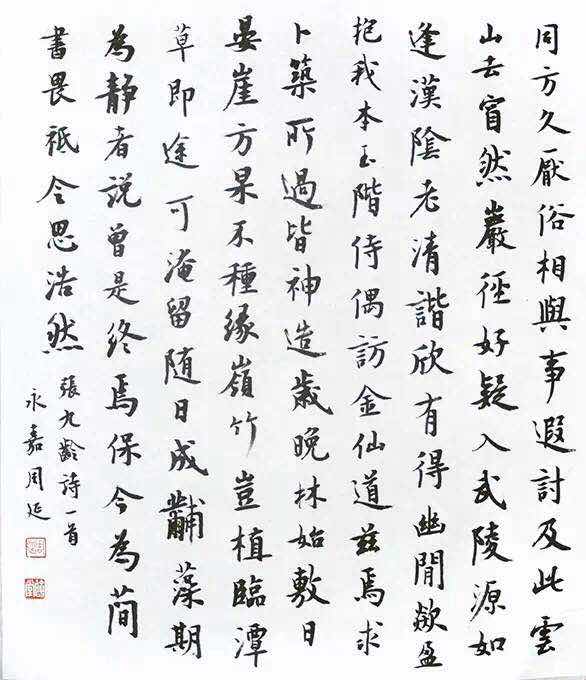 同方久厭俗相與事遐討及此雲
山去窅然巖徑好疑入武陵源如
逢漢陰老清諧欣有得幽閒欻盈
抱我本玉階侍偶訪金仙道茲焉求
卜築所過皆神造歲晚林始敷日
晏崖方杲不種緣嶺竹豈植臨潭
草即途可淹留随日成黼藻期
為静者說曾是終焉保今為簡
書畏祗令思浩然
張九齡詩一首
永嘉周延